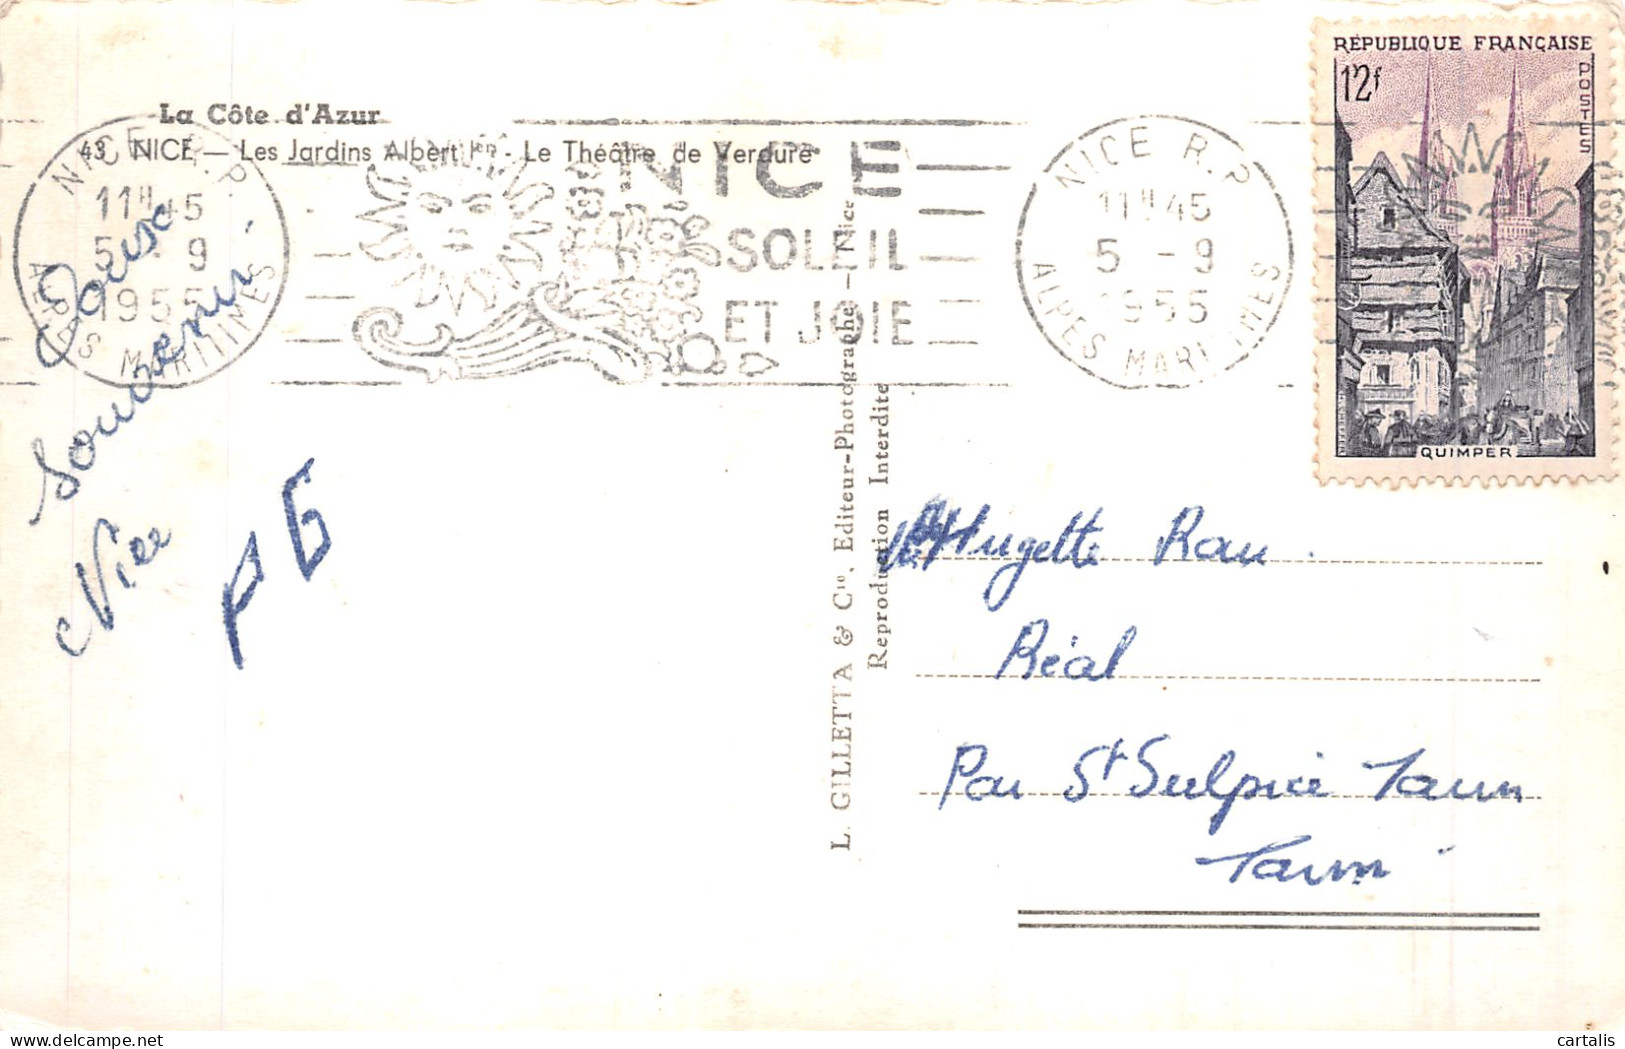 La Côte d'Azur
43 NICE — Les Jardins Albert Ier - Le Théâtre de Verdure
NICE R.P.
11H45
5 - 9
1955
ALPES MARITIMES
NICE
SOLEIL
ET JOIE
NICE R.P.
11H45
5 - 9
1955
ALPES MARITIMES
RÉPUBLIQUE FRANÇAISE
12f
POSTES
QUIMPER
Doux
Souvenir
Nice
L. GILLETTA & Cie, Editeur-Photographe — Nice
Reproduction Interdite
Hugette Rau
Réal
Par St Sulpice Tarn
Tarn
cartalis